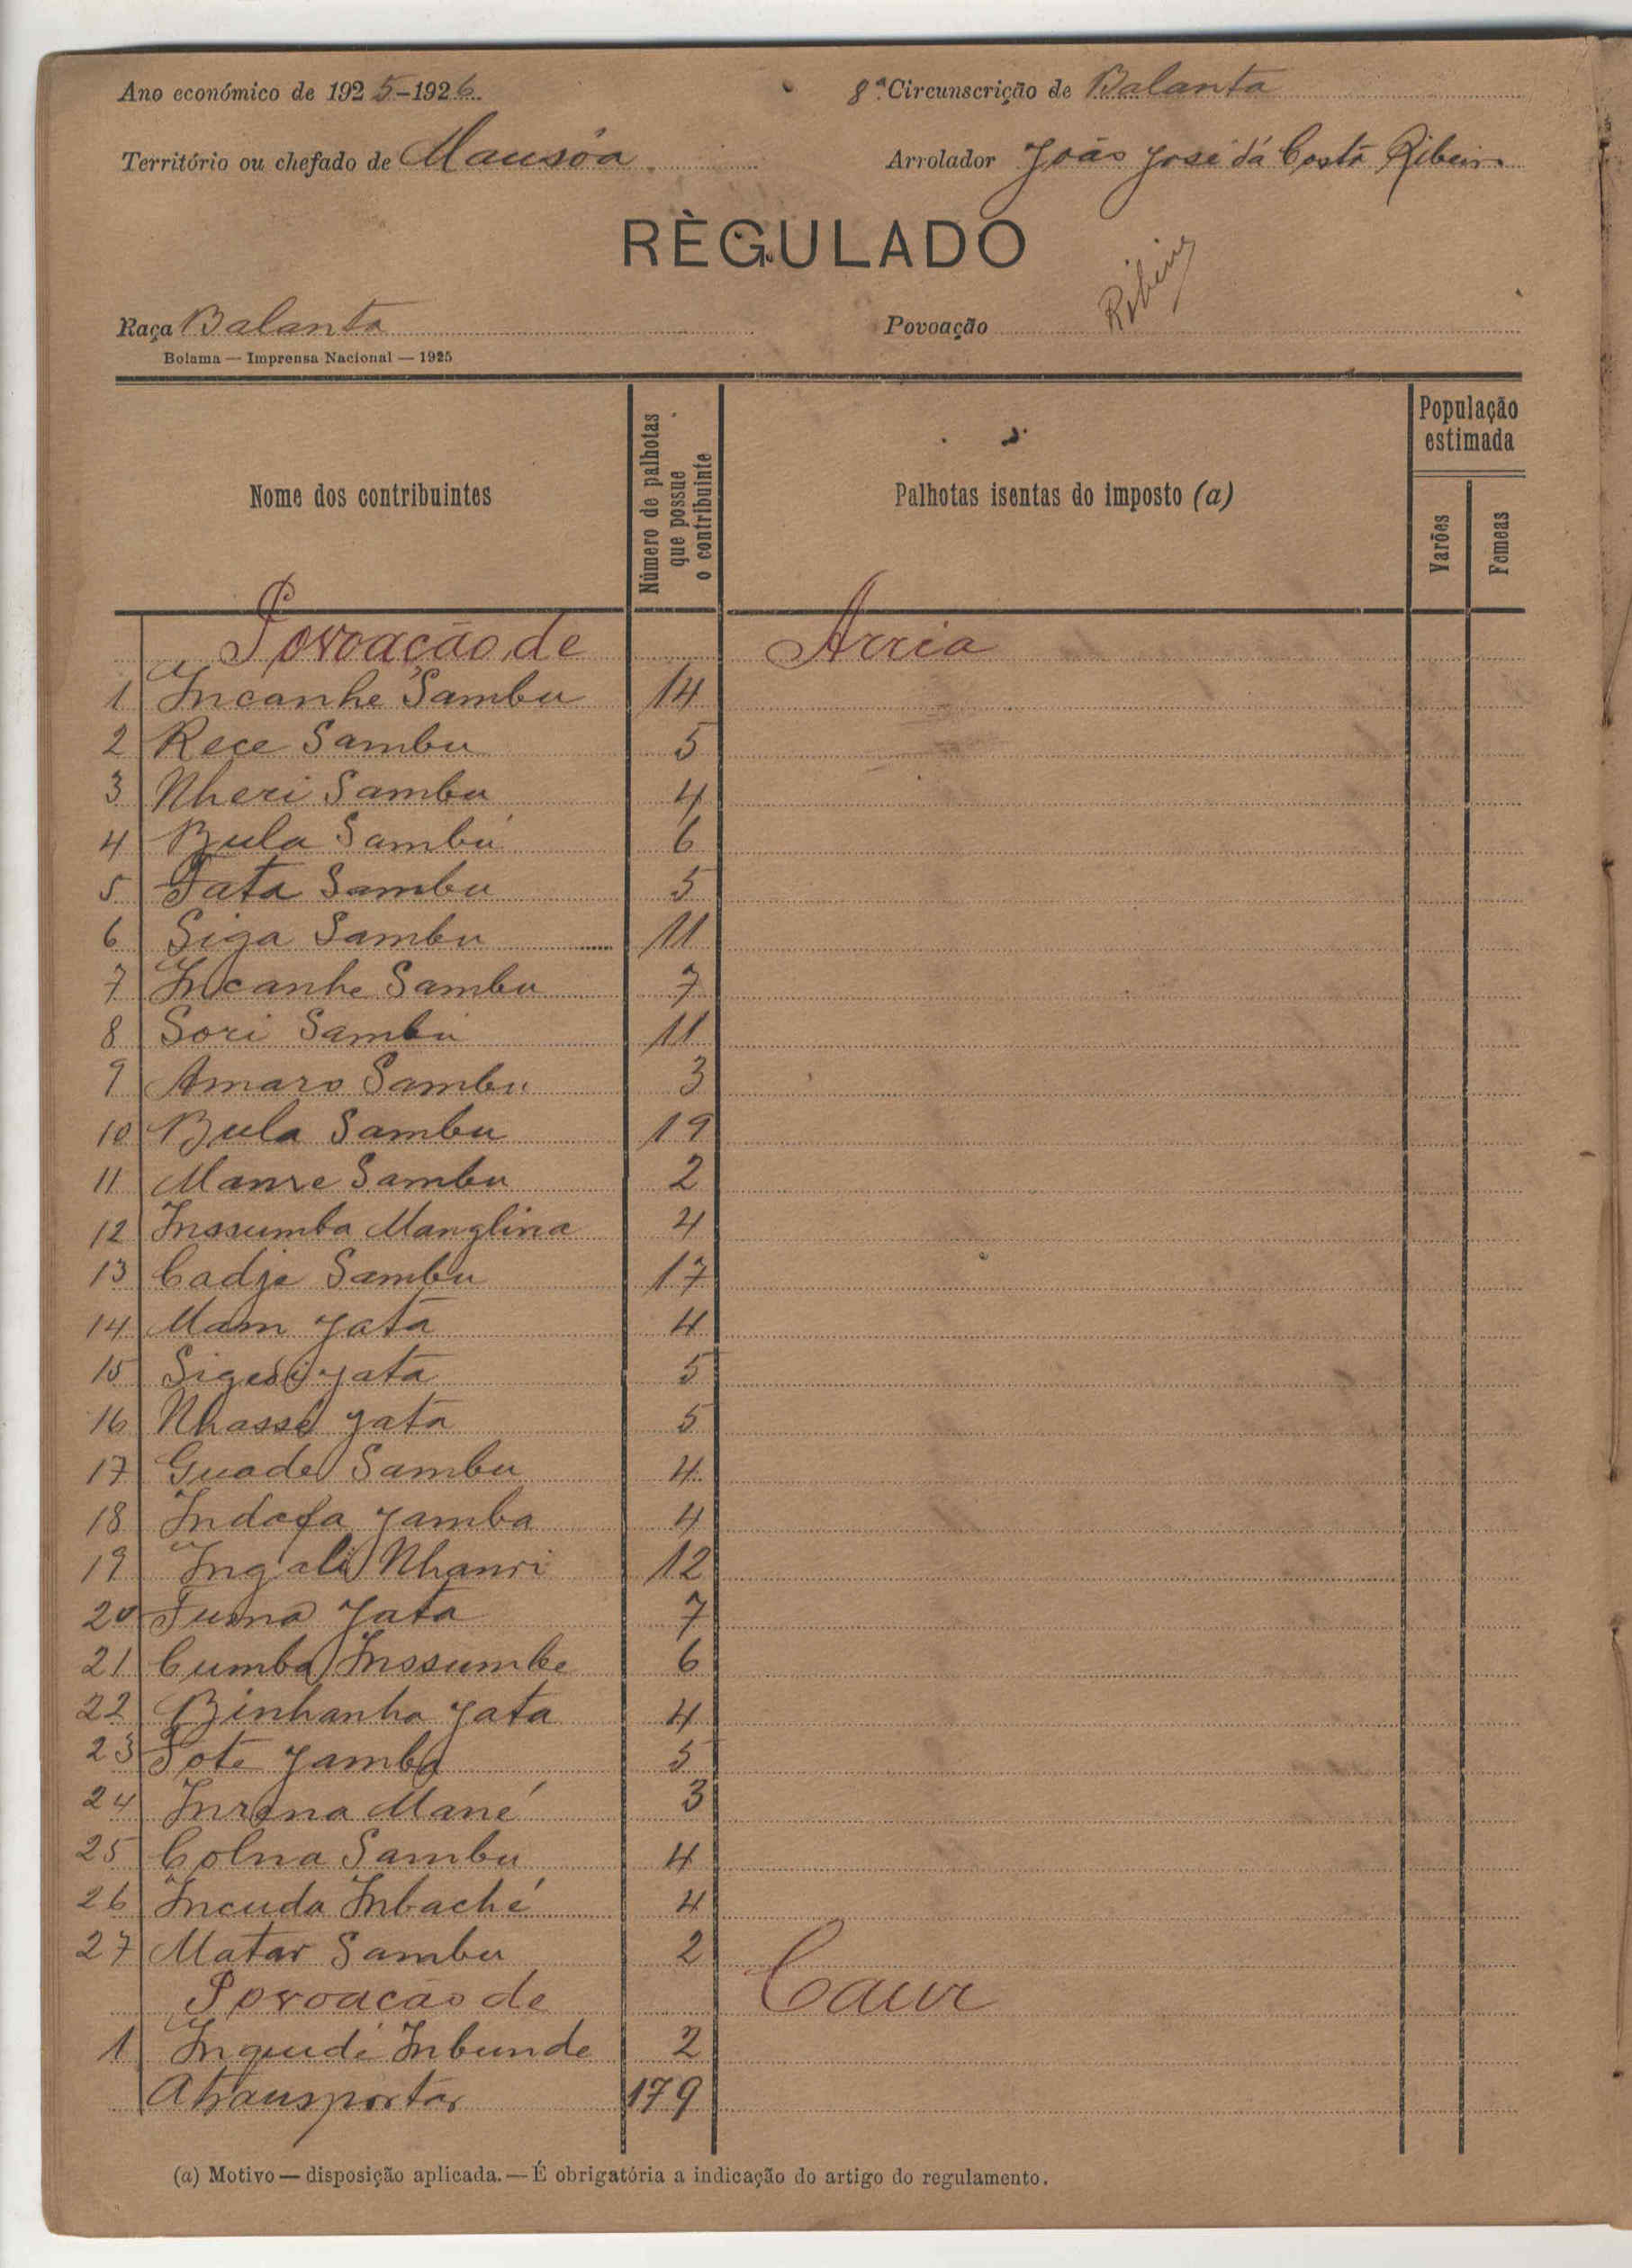 Ano económico de 1925-1926
8ª Circunscrição de Balanta
Território ou chefado de Mansôa
Arrolador João José da Costa Ribeiro
RÈGULADO
Ribeiro
Raça Balanta
Povoação
Bolama — Imprensa Nacional — 1925
Nome dos contribuintes
Número de palhotas que possue o contribuinte
Palhotas isentas do imposto (a)
População estimada
Varões
Femeas
Povoação de Arria
1 Incanhe Sambu 14
2 Rece Sambu 5
3 Nheri Sambu 4
4 Bula Sambu 6
5 Tata Sambu 5
6 Siga Sambu 11
7 Incanhe Sambu 7
8 Sori Sambu 11
9 Amaro Sambu 3
10 Bula Sambu 19
11 Manre Sambu 2
12 Inssumba Manglina 4
13 Cadje Sambu 17
14 Mam Yata 4
15 Yata 5
16 Nhasse Yata 5
17 Guade Sambu 4
18 Indafa Yamba 4
19 Ingali Nhanri 12
20 Yata 7
21 Cumba Inssumbe 6
22 Binhanha Yata 4
23 Yamba 5
24 Mané 3
25 Colna Sambu 4
26 Incuda Inbaché 4
27 Matar Sambu 2
Povoação de Caur
1 Inquidé Inbunde 2
A transportar 179
(a) Motivo — disposição aplicada. — É obrigatória a indicação do artigo do regulamento.